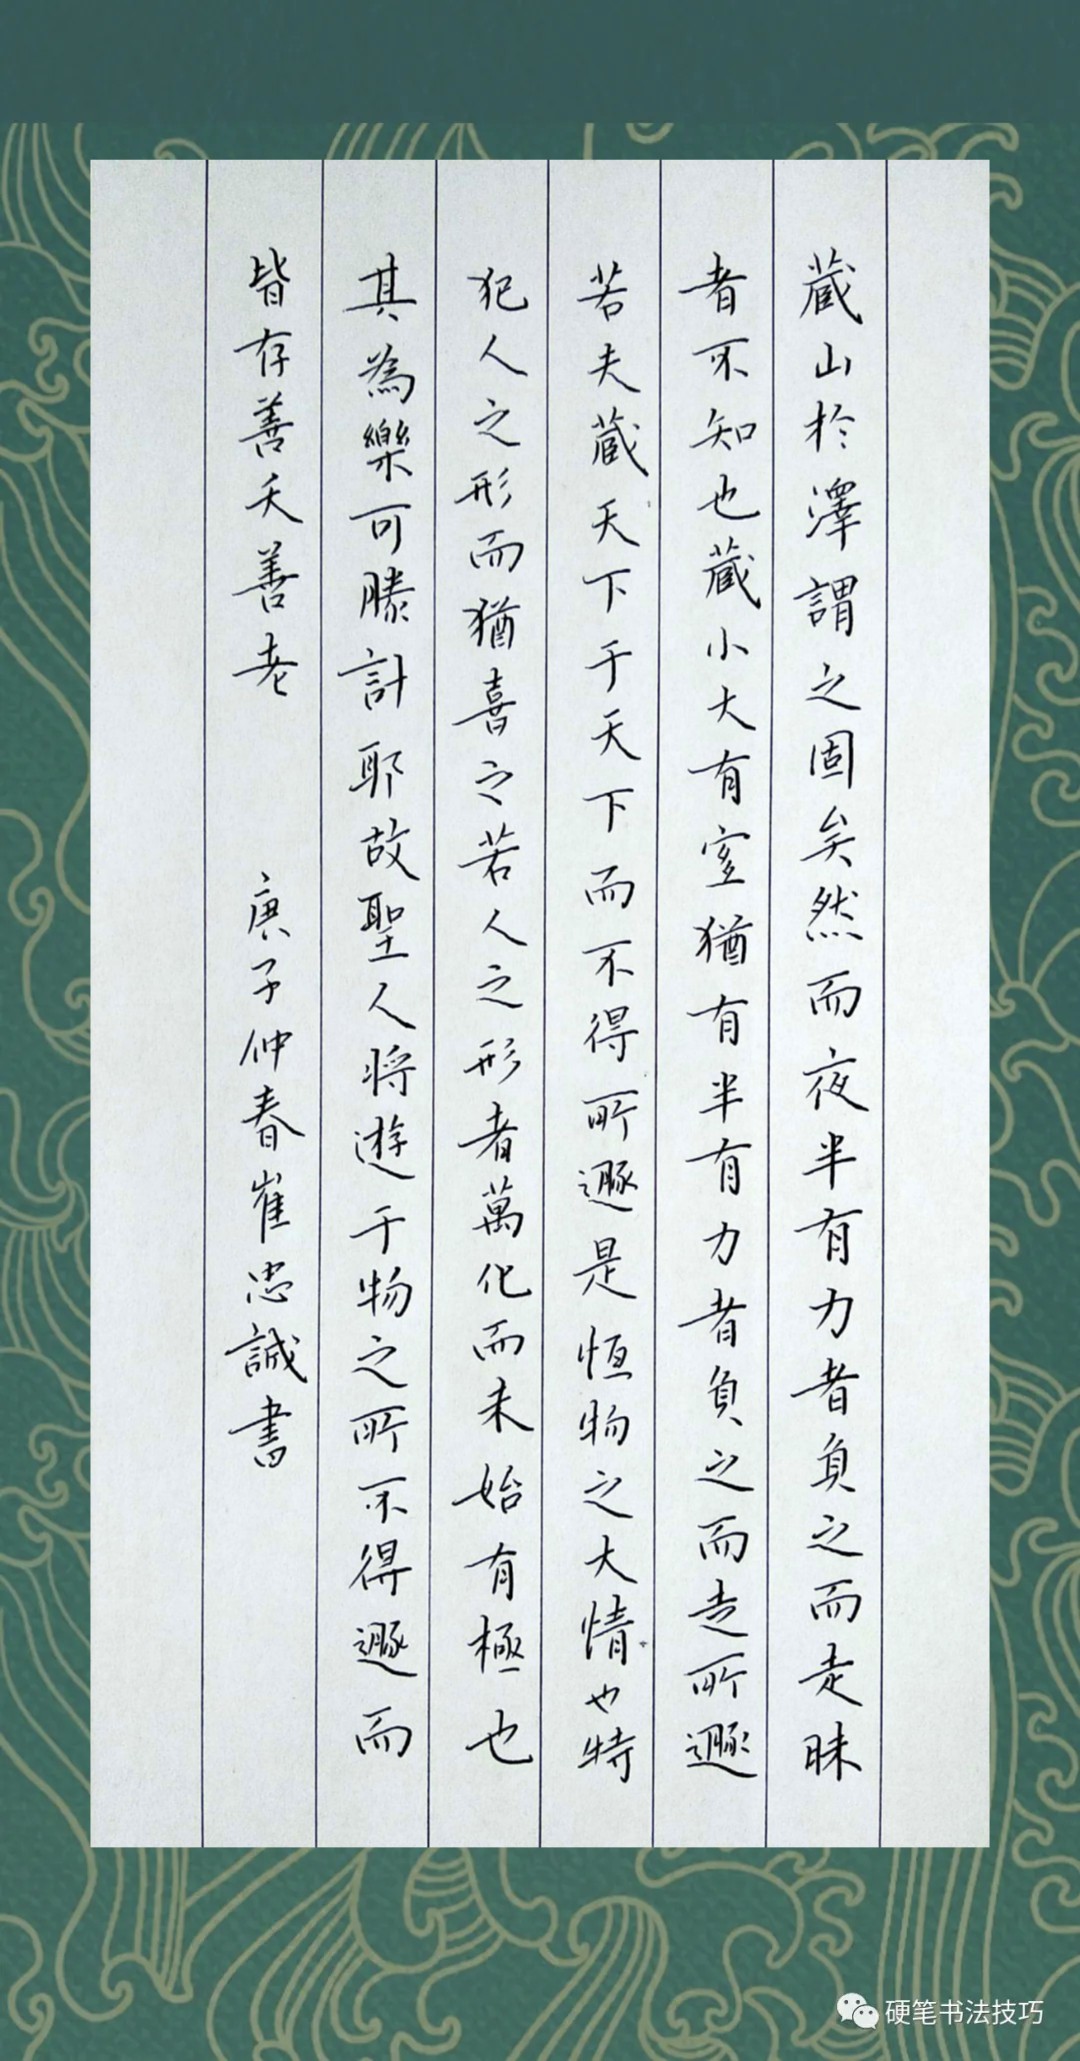 蔵山於澤謂之固矣然而夜半有力者負之而走昧
者不知也蔵小大有宜猶有半有力者負之而走所遯
若夫蔵天下于天下而不得所遯是恆物之大情也特
犯人之形而猶喜之若人之形者萬化而未始有極也
其為樂可勝計耶故聖人将遊于物之所不得遯而
皆存善夭善老 庚子仲春崔忠誠書
硬笔书法技巧